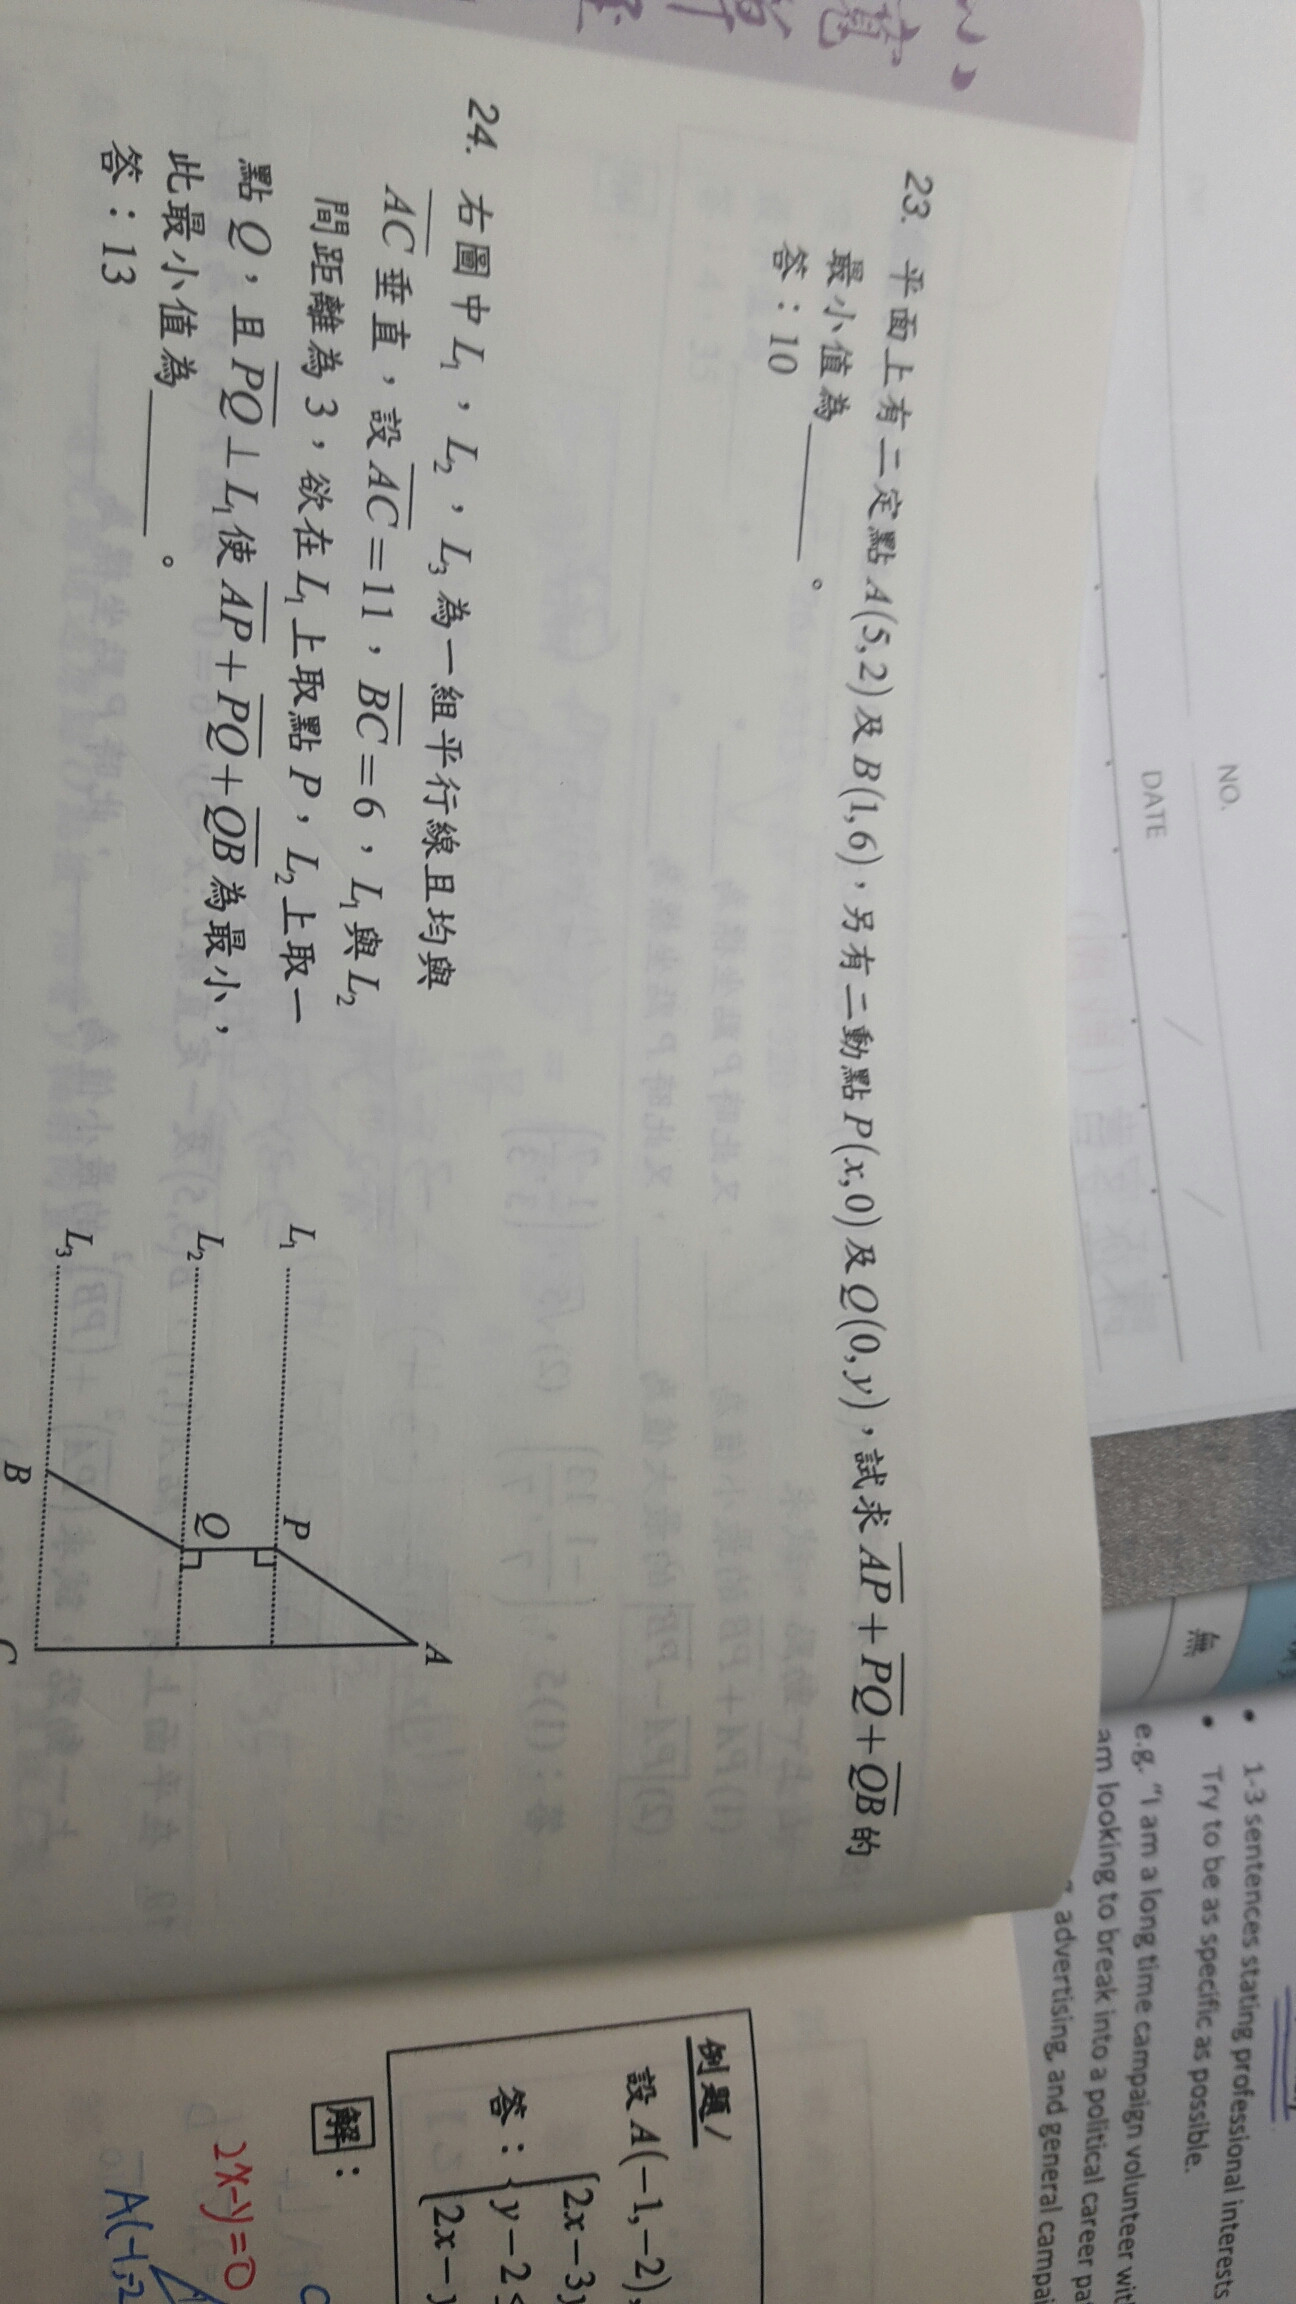 23. 平面上有二定點A(5,2)及B(1,6)，另有二動點P(x,0)及Q(0,y)，試求AP+PQ+QB的
最小值為______。
答：10
24. 右圖中L₁，L₂，L₃為一組平行線且均與
AC垂直，設AC=11，BC=6，L₁與L₂
間距離為3，欲在L₁上取點P，L₂上取一
點Q，且PQ⊥L₁使AP+PQ+QB為最小，
此最小值為______。
答：13
A
L₁
P
L₂
Q
L₃
B
C
例題1
設A(-1,-2),
答：
2x-3y
y-2≤
2x-
解：
2x-y=0
A(-1,-2
NO.
DATE
無
• 1-3 sentences stating professional interests
• Try to be as specific as possible.
e.g. "I am a long time campaign volunteer wit
am looking to break into a political career pa
, advertising, and general campai